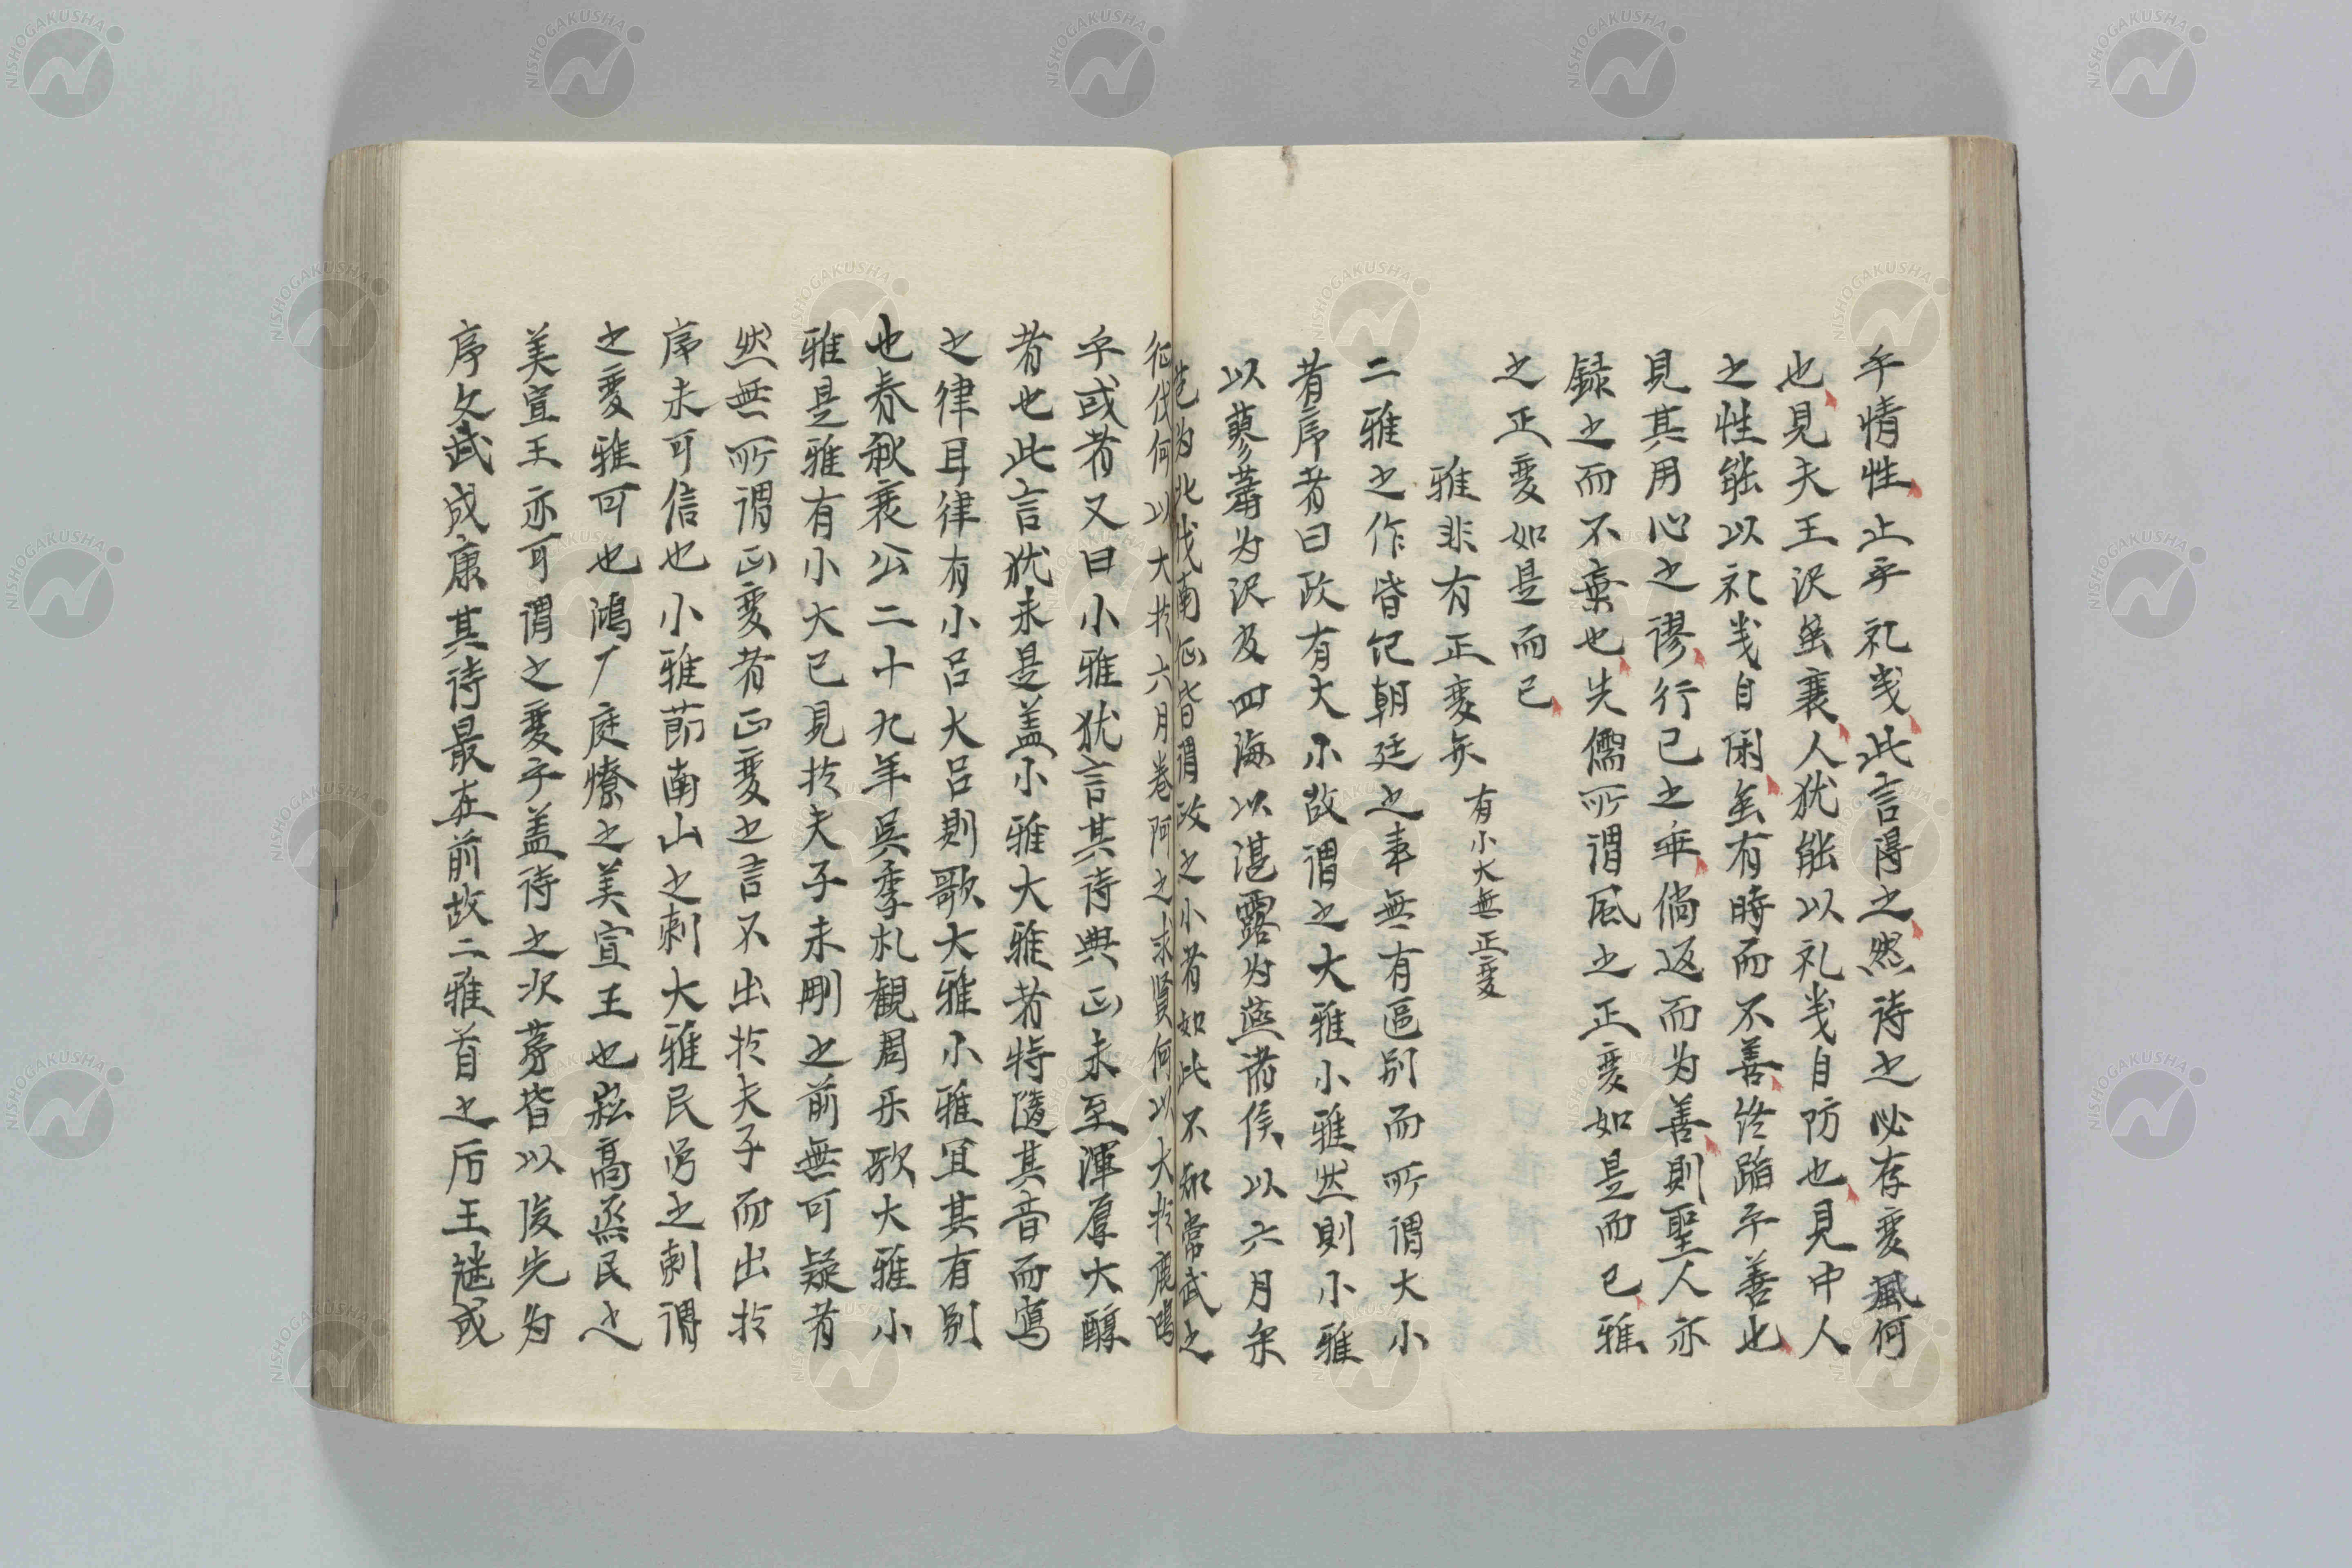 乎情性止乎礼义此言得之然诗之必存变風何
也見夫王沢虽衰人犹能以礼义自防也見中人
之性能以礼义自闲虽有時而不善终蹈乎善也
見其用心之謬行己之乖倘返而为善則聖人亦
録之而不棄也先儒所谓风之正变如是而已雅
之正变如是而已
雅非有正变矣 有小大無正变
二雅之作皆记朝廷之事無有區别而所谓大小
者序者曰政有大小故谓之大雅小雅然則小雅
以蓼萧为沢及四海以湛露为燕诸侯以六月采
芑为北伐南征皆谓政之小者如此不知常武之
征伐何以大扵六月卷阿之求賢何以大扵鹿鳴
乎或者又曰小雅犹言其诗典正未至渾厚大醇
者也此言犹未是盖小雅大雅者特隨其音而寫
之律耳律有小吕大吕則歌大雅小雅宜其有别
也春秋襄公二十九年吳季札観周乐歌大雅小
雅是雅有小大已見扵夫子未刪之前無可疑者
然無所谓正变者正变之言不出扵夫子而出扵
序未可信也小雅莭南山之刺大雅民劳之刺谓
之变雅可也鴻厂庭燎之美宣王也崧高烝民之
美宣王亦可谓之变乎盖诗之次苐皆以後先为
序文武成康其诗最在前故二雅首之厉王継或
NISHOGAKUSHA